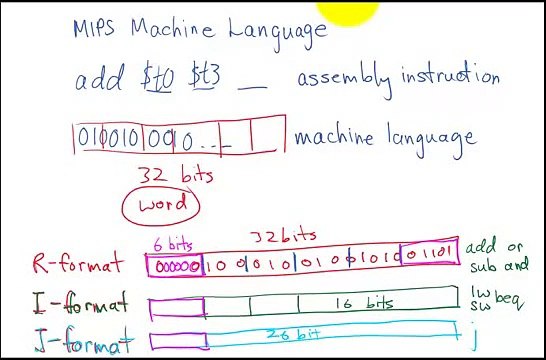 MIPS Machine Language
add $t0 $t3 __ assembly instruction
010010 000 0... machine language
32 bits
word
6 bits 32 bits
R-format 000000 add or sub and
I-format 16 bits lw sw beq
J-format 26 bit j